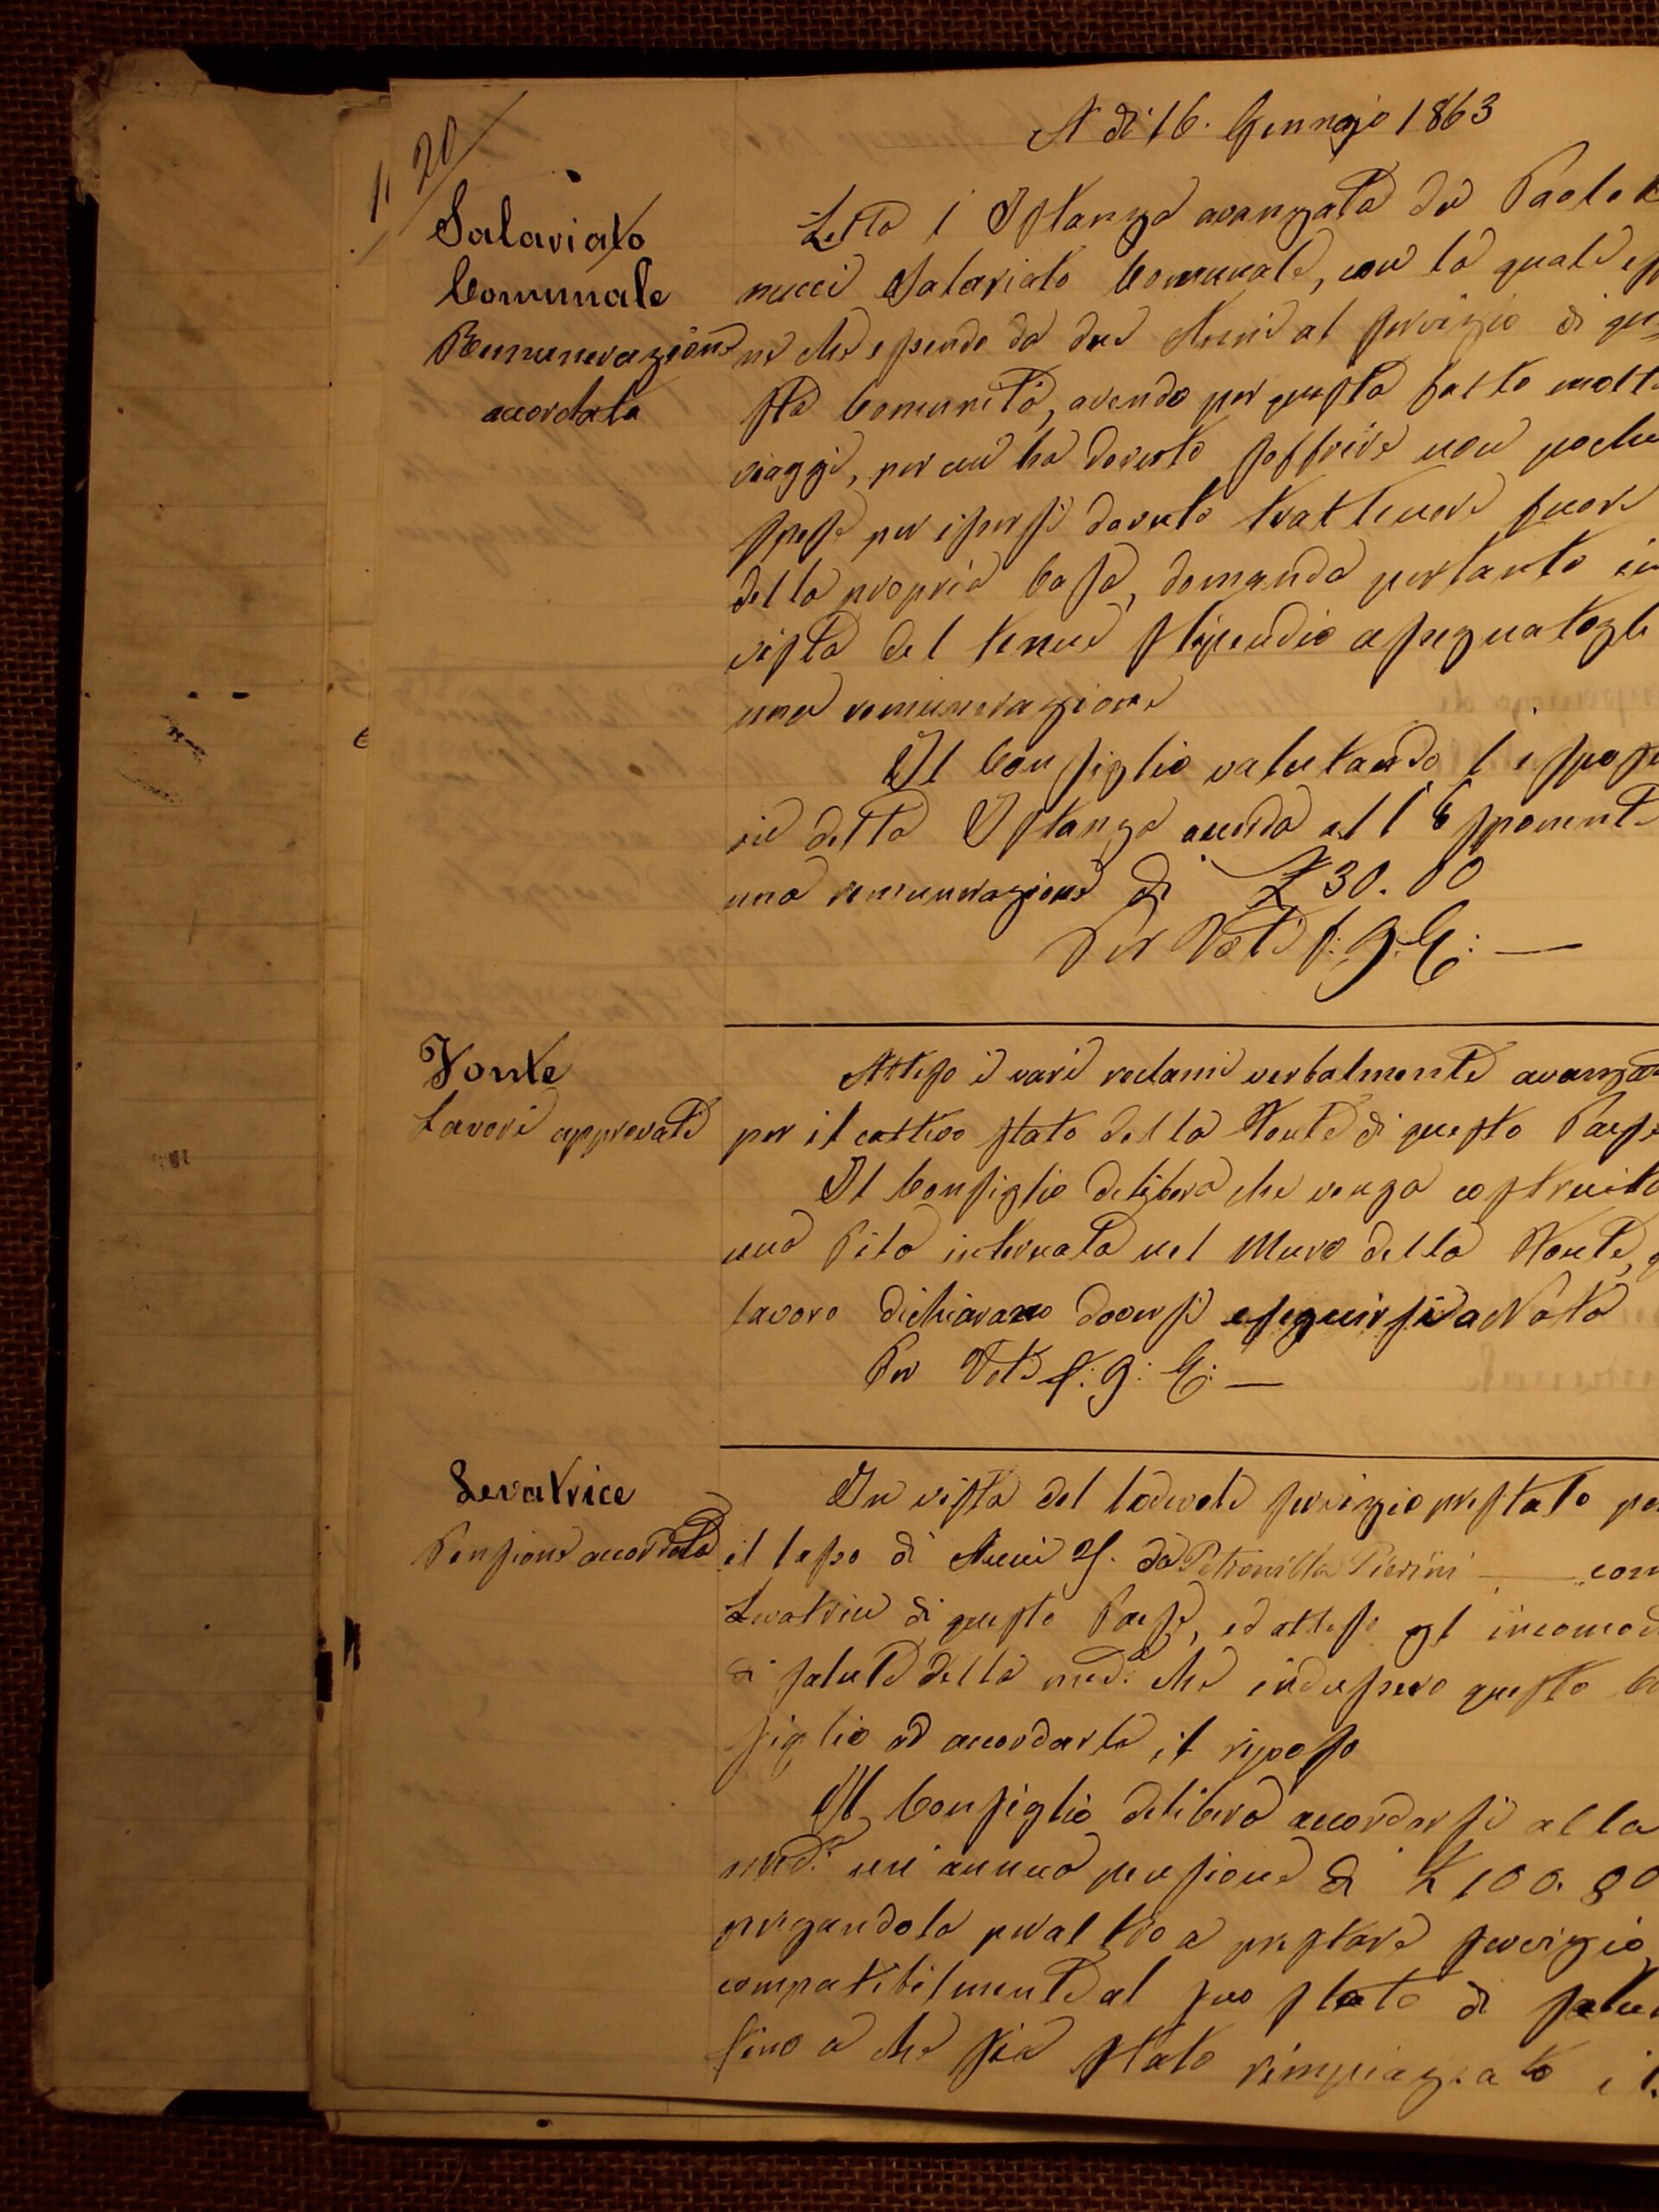 20
A dì 16. Gennajo 1863
Salariato
Comunale
Remunerazione
accordata
Letta l'Istanza avanzata da Paolo
nucci Salariato Comunale, con la quale esp
ne che essendo da due Anni al servizio di que
sta Comunità, avendo per questa fatto molti
viaggi, per cui ha dovuto soffrire non poche
spese per essersi dovuto trattenere fuori
della propria Casa, domanda pertanto in
vista del tenue stipendio assegnatogli
una remunerazione
Il Consiglio valutando l'espost
in detta Istanza accorda all'Esponente
una remunerazione di £ 30. 00
Per Voti f: 9: C: —
Fonte
Lavori approvati
Atteso i vari reclami verbalmente avanzat
per il cattivo stato della Fonte di questo Paese
Il Consiglio delibera che venga costruita
una Pila internata nel Muro della Fonte, q
lavoro dichiarano doversi eseguirsi a Nota
Per Voti f: 9: C: —
Levatrice
Pensione accordata
In vista del lodevole servizio prestato per
il lasso di Anni da Petronilla Pierini — com
Levatrice di questo Paese, ed atteso gl'incomodi
di salute della med.a che indussero questo Co
siglio ad accordarle il riposo
Il Consiglio delibera accordarsi alla
med.a un'annua pensione di £ 100. 80
pregandola peraltro a prestare servizio
compatibilmente al suo stato di salu
fino a che sia stato rimpiazzato il